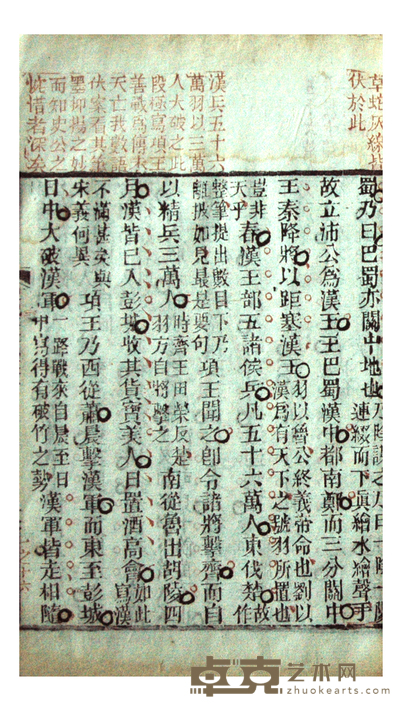 草蛇灰線皆
伏於此
漢兵五十六
萬羽以三萬
人大破之此
段極寫項王
善戰爲傳末
天亡我數語
伏案看其筆
墨抑揚之妙
而知史公之
惜者深矣
蜀乃曰巴蜀亦關中地也 連綴而下眞繪水繪聲手
故立沛公爲漢王王巴蜀漢中都南鄭而三分關中
王秦降將以距塞漢王 羽以魯公終義帝命也劉以 漢爲有天下之號羽所置也
豈非天乎 春漢王部五諸侯兵凡五十六萬人東伐楚 故作
整筆提出數目下乃 如見最是要句 項王聞之卽令諸將擊齊而自
以精兵三萬人 時齊王田榮反楚 羽方自將擊之 南從魯出胡陵四
月漢皆已入彭城收其貨寶美人日置酒高會 寫漢如此
不滿甚矣與宋義何異 項王乃西從蕭晨擊漢軍而東至彭城
日中大破漢軍 一路戰來自晨至日 中寫得有破竹之勢 漢軍皆走相隨
卓克艺术网
zhuokearts.com